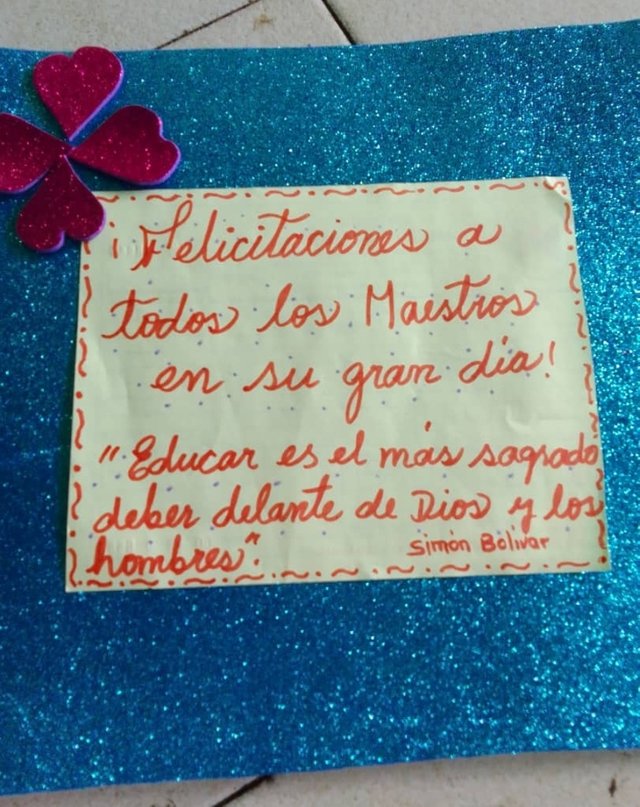 ¡Felicitaciones a
todos los Maestros
en su gran día!
"Educar es el más sagrado
deber delante de Dios y los
hombres".
Simón Bolívar